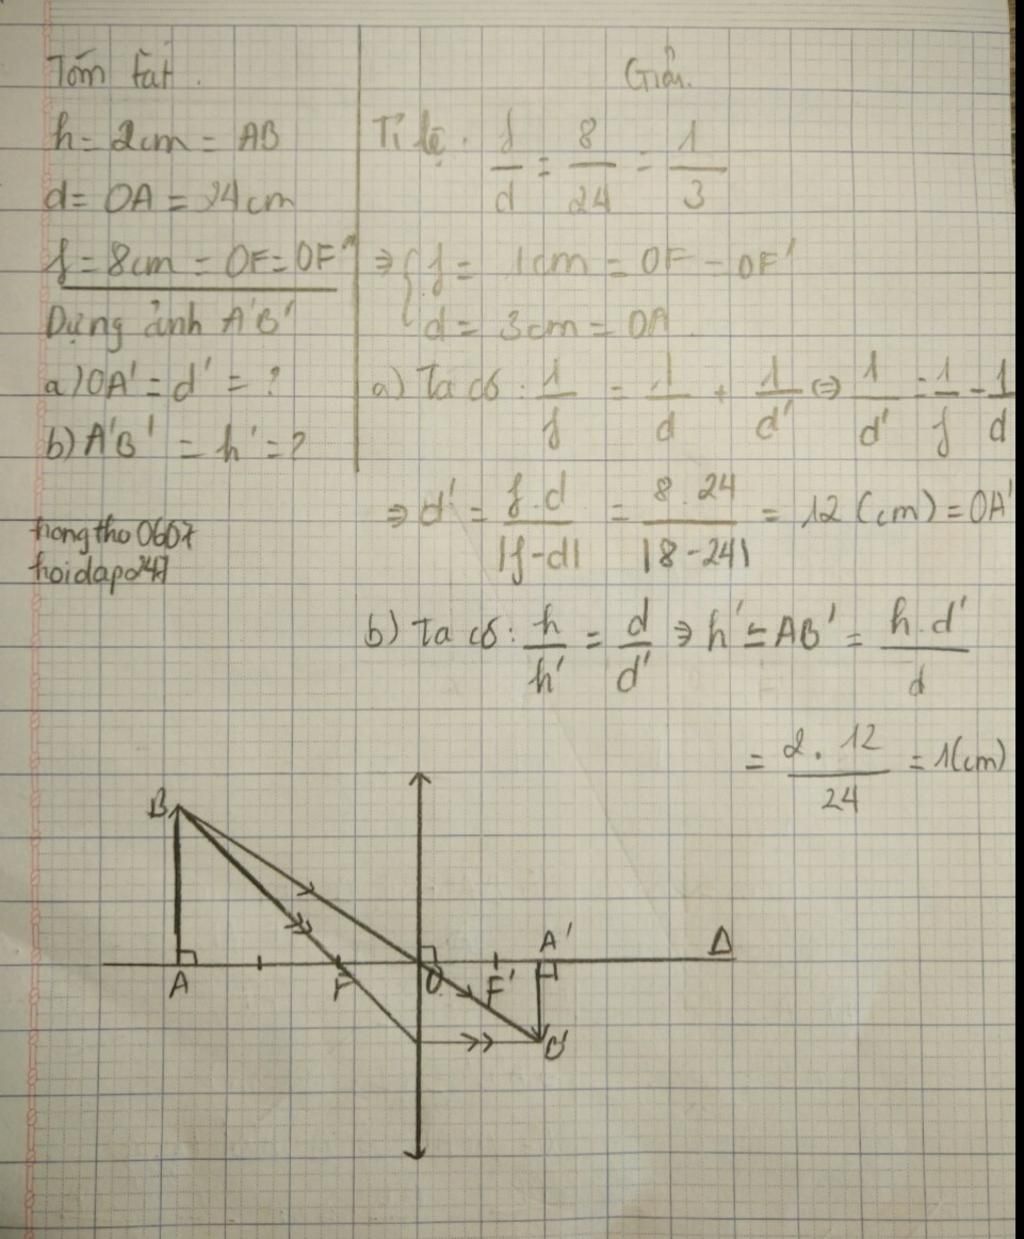 Tóm tắt.
h = 2cm = AB
d = OA = 24cm
f = 8cm = OF = OF'
Dựng ảnh A'B'
a) OA' = d' = ?
b) A'B' = h' = ?
hongtho0607
hoidap247
Giải.
Tỉ lệ. f/d = 8/24 = 1/3
⇒ { f = 1cm = OF = OF'
d = 3cm = OA
a) Ta có: 1/f = 1/d + 1/d' ⇔ 1/d' = 1/f - 1/d
⇒ d' = f.d/|f-d| = 8.24/|8-24| = 12 (cm) = OA'
b) Ta có: h/h' = d/d' ⇒ h' = AB' = h.d'/d
= 2.12/24 = 1(cm)
B
A' Δ
A F O F'
B'